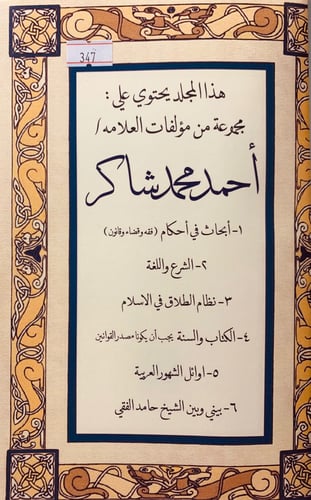 347
هذا المجلد يحتوي على :
مجموعة من مؤلفات العلامه /
أحمد محمد شاكر
١- أبحاث في أحكام (فقه وقضاء وقانون)
٢- الشرع واللغة
٣- نظام الطلاق في الاسلام
٤- الكتاب والسنة يجب أن يكونا مصدر القوانين
٥- اوائل الشهور العربية
٦- بيني وبين الشيخ حامد الفقي